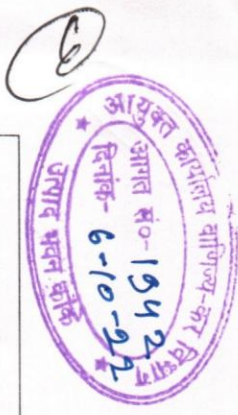 आयुक्त कार्यालय वाणिज्य-कर विभाग
आगत सं०- 1942
दिनांक- 6-10-22
उत्पाद भवन काँके